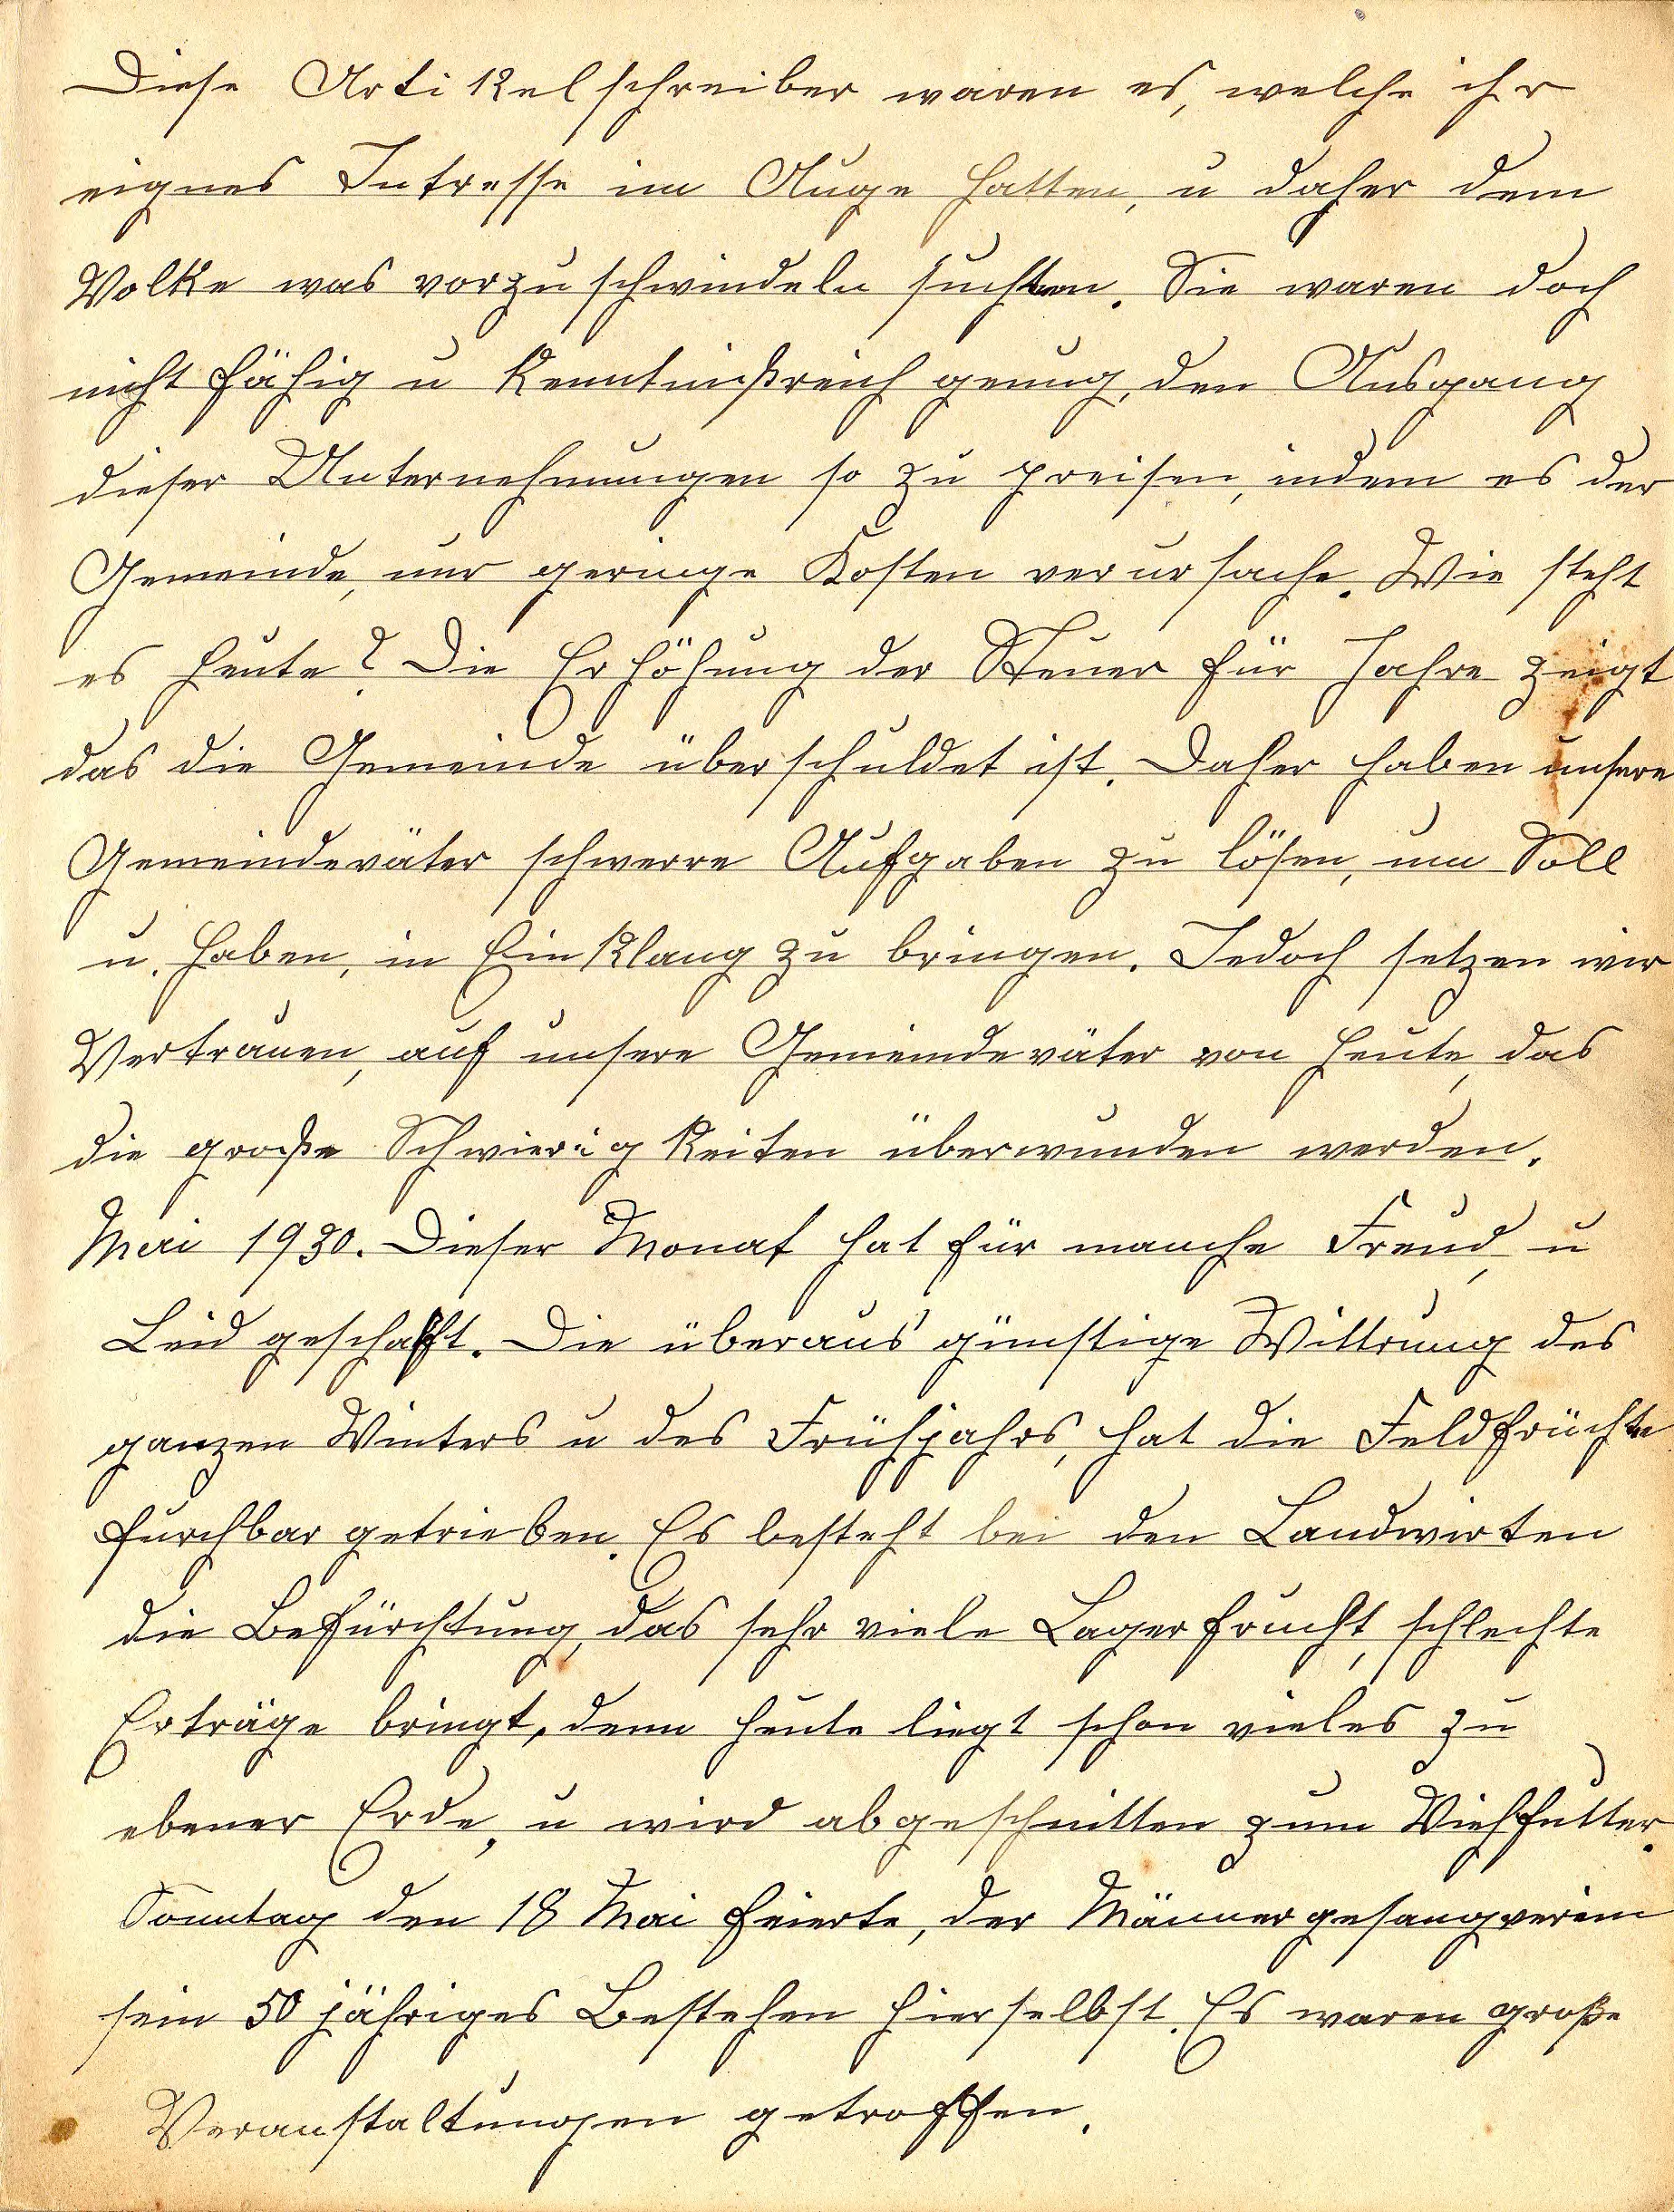 Diese Artikelschreiber waren es, welche ihr
eignes Intresse im Auge hatten, u daher dem
Volke was vorzuschwindeln suchten. Sie waren doch
nicht fähig u kenntnißreich genug, den Ausgang
dieser Unternehmungen so zu preisen, indem es der
Gemeinde, nur geringe Kosten verursache. Wie steht
es heute? Die Erhöhung der Steuer für Jahre zeigt
das die Gemeinde überschuldet ist. Daher haben unsere
Gemeindeväter schwerre Aufgaben zu lösen, um Soll
u. Haben, in Einklang zu bringen. Jedoch setzen wir
Vertrauen, auf unsere Gemeindeväter von heute, das
die große Schwierigkeiten überwunden werden.
Mai 1930. Dieser Monat hat für manche Freud, u
Leid geschafft. Die überaus günstige Wittrung des
ganzen Winters u des Frühjahrs, hat die Feldfrüchte
furchbar getrieben. Es besteht bei den Landwirten
die Befürchtung, das sehr viele Lagerfrucht, schlechte
Erträge bringt, denn heute liegt schon vieles zu
ebener Erde, u wird abgeschnitten zum Viehfutter.
Sonntag den 18 Mai feierte, der Männergesangverein
sein 50 jähriges Bestehen hierselbst. Es waren große
Veranstaltungen getroffen.